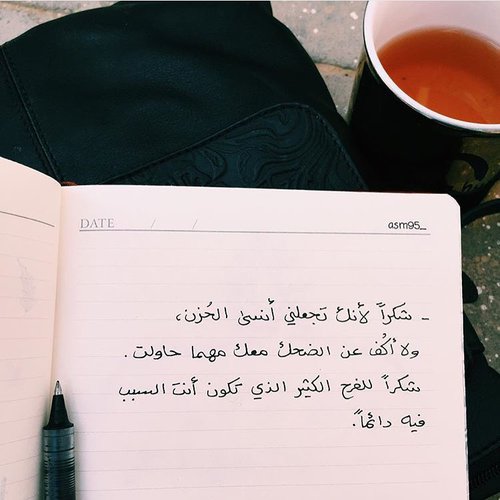 DATE / /
asm95_
- شكراً لأنك تجعلني أنسىٰ الحُزن،
ولا أكُف عن الضحك معك مهما حاولت.
شكراً للفرح الكثير الذي تكون أنت السبب
فيه دائماً.